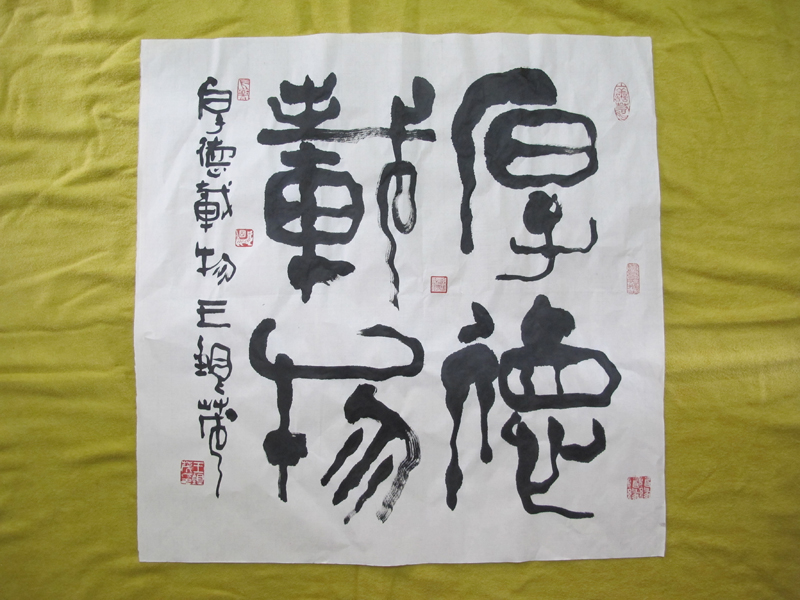 厚德
載物
厚德載物王